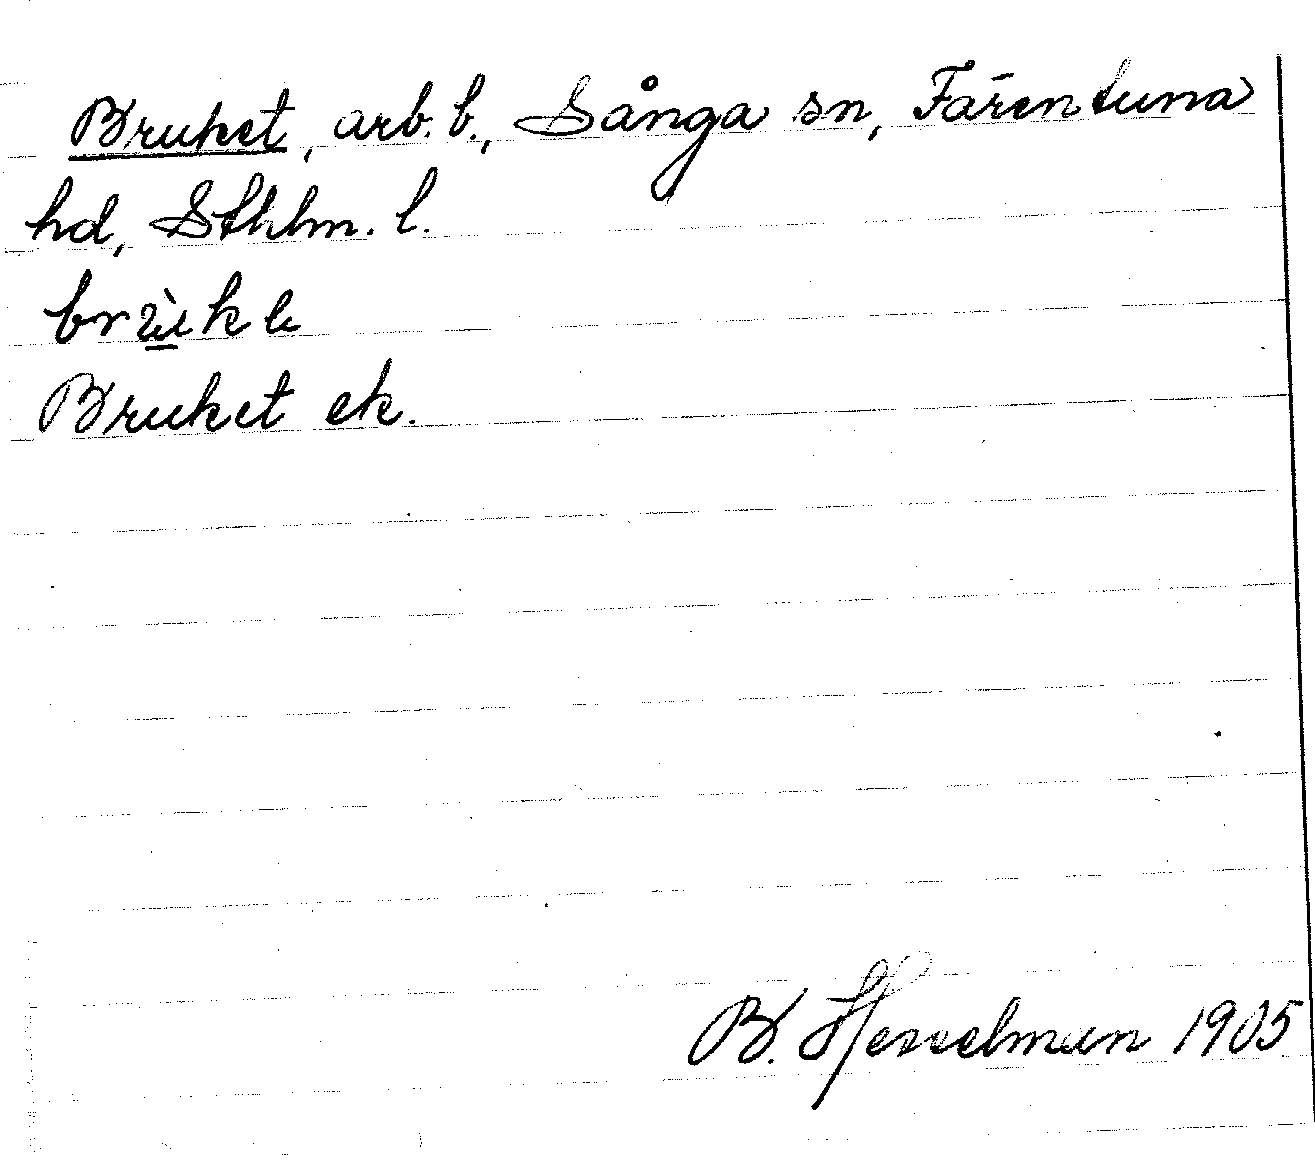 Bruket, arb. b., Sånga sn, Färentuna
hd, Sthlm. l.
Bruket ek.
B. Hesselman 1905